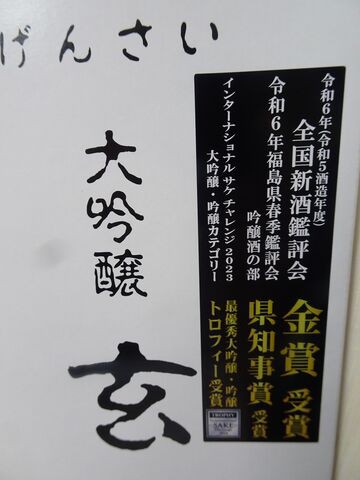 げんさい
大吟醸
玄
令和6年(令和5酒造年度)
全国新酒鑑評会
金賞受賞
令和6年福島県春季鑑評会
吟醸酒の部
県知事賞受賞
インターナショナル サケ チャレンジ 2023
大吟醸・吟醸カテゴリー
最優秀大吟醸・吟醸
トロフィー受賞
TROPHY
SAKE